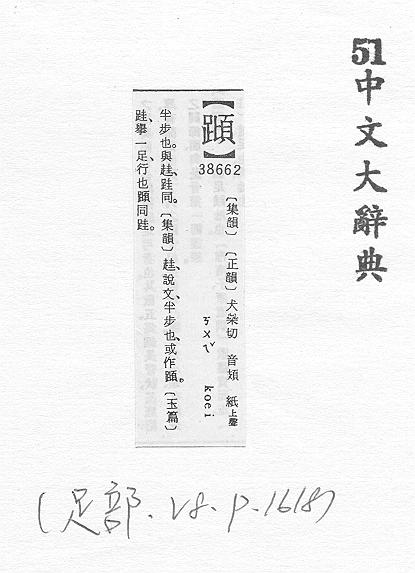 51中文大辭典
【蹞】
38662
〔集韻〕〔正韻〕犬橤切 音頍 紙上聲
ㄎㄨㄟˇ koei
半步也。與䞨、跬同。〔集韻〕䞨、說文、半步也、或作蹞。〔玉篇〕
跬、舉一足、行也蹞同跬。
(足部.V8.P.1618)